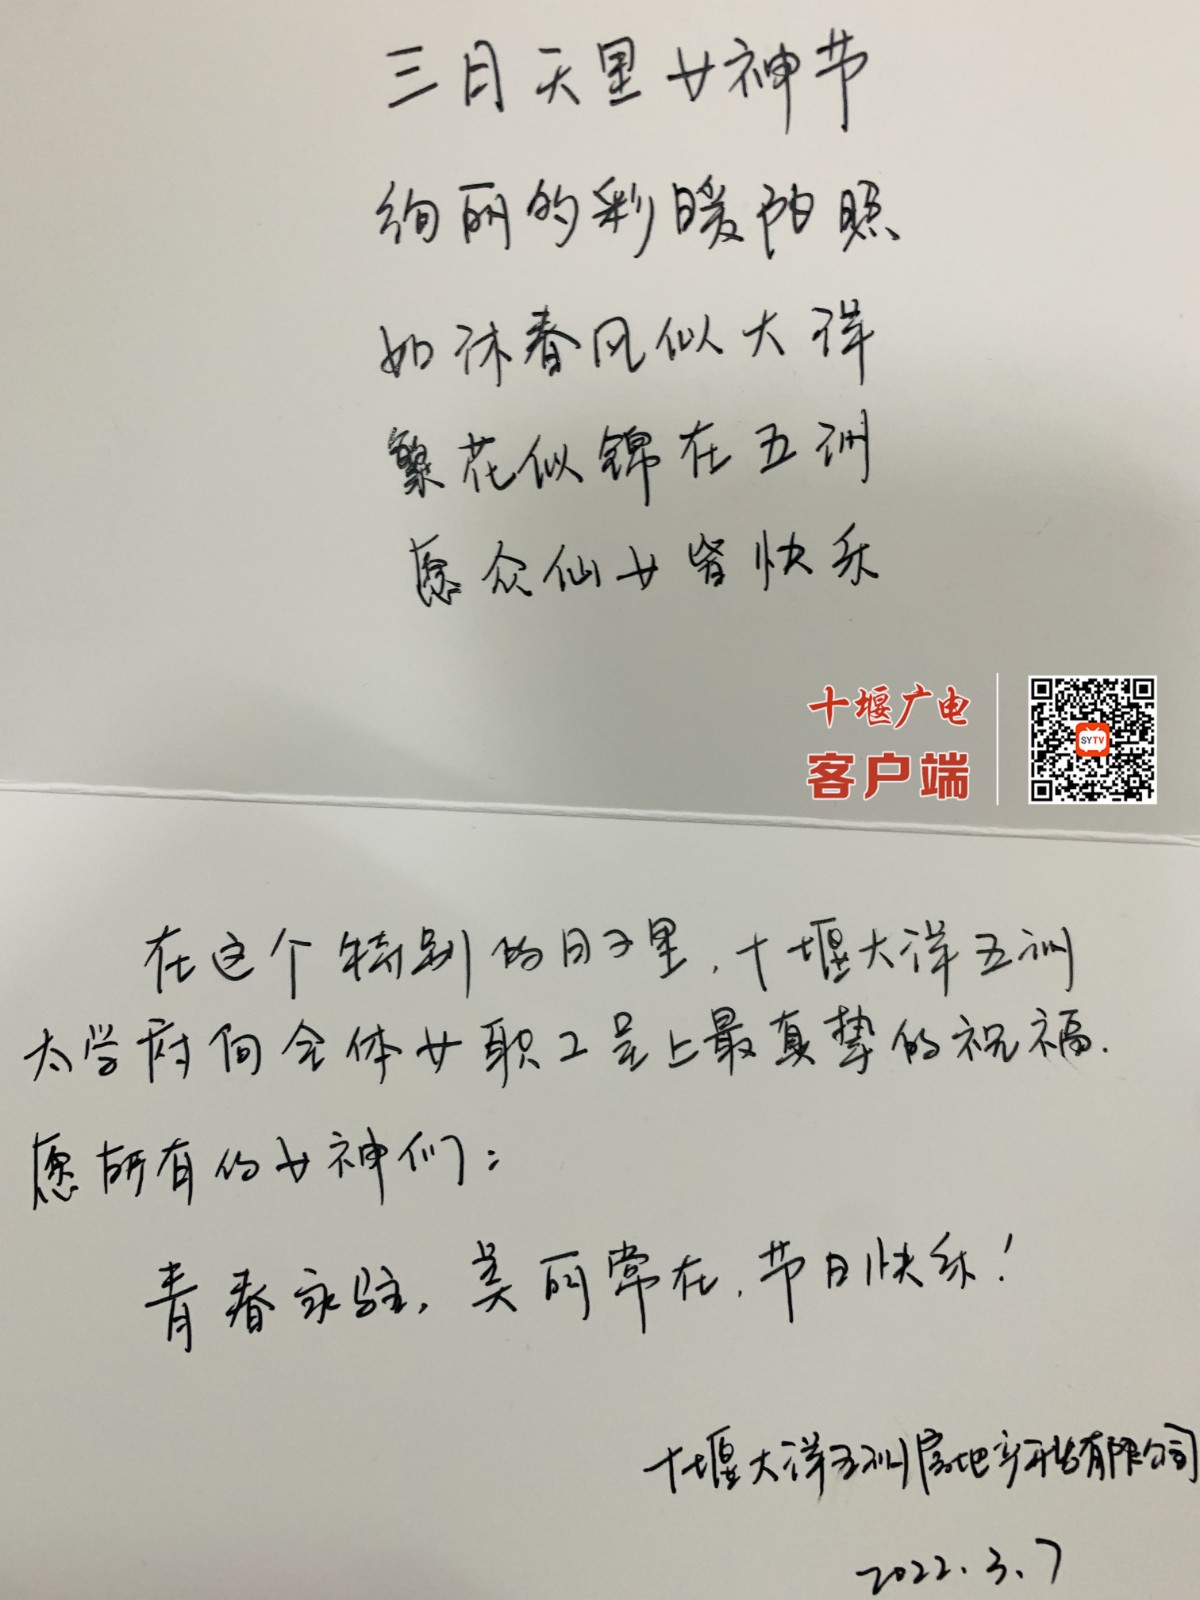 三月天里女神节
绚丽的彩暖阳照
如沐春风似大洋
繁花似锦在五洲
愿众仙女皆快乐
十堰广电
客户端
SYTV
在这个特别的日子里，十堰大洋五洲
大学府向全体女职工呈上最真挚的祝福.
愿所有的女神们：
青春永驻，美丽常在，节日快乐！
十堰大洋五洲房地产开发有限公司
2022.3.7